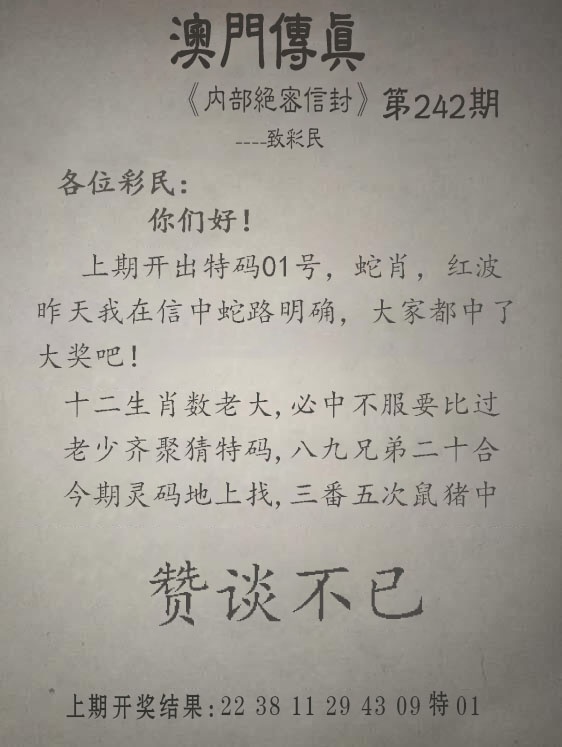 澳門傳眞
《内部絕密信封》第242期
----致彩民
各位彩民：
你们好！
上期开出特码01号，蛇肖，红波
昨天我在信中蛇路明确，大家都中了
大奖吧！
十二生肖数老大,必中不服要比过
老少齐聚猜特码,八九兄弟二十合
今期灵码地上找,三番五次鼠猪中
赞谈不已
上期开奖结果:22 38 11 29 43 09 特 01